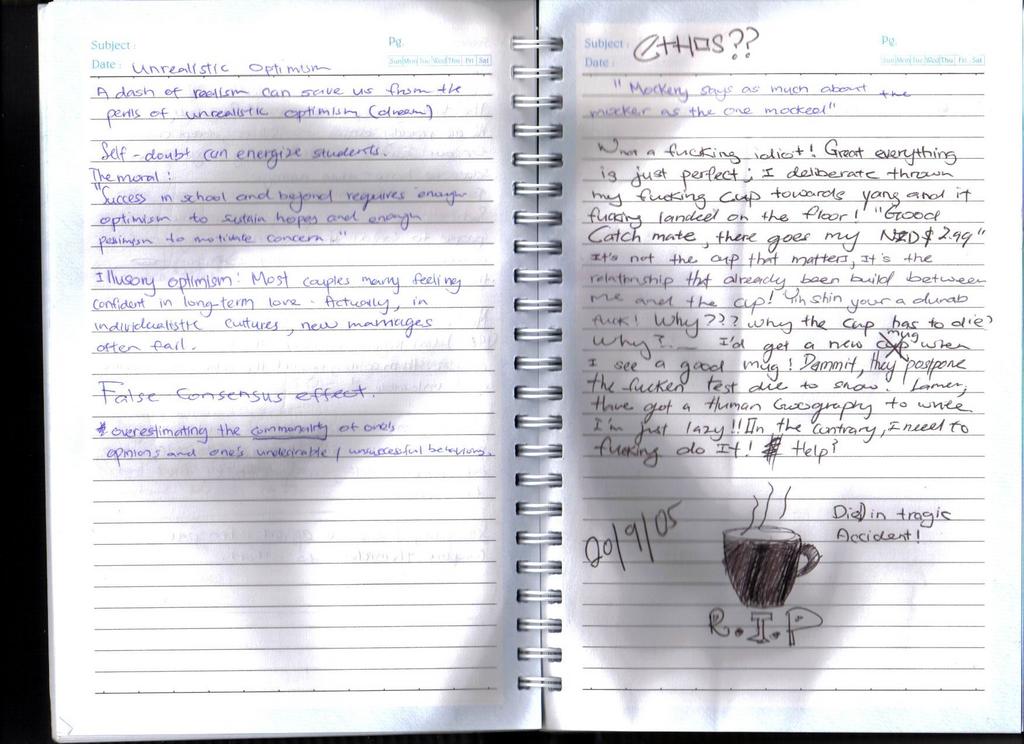 Subject :
Pg.
Date : Unrealistic Optimism
Sun Mon Tue Wed Thu Fri Sat
A dash of realism can save us from the
perils of unrealistic optimism (dream)
Self-doubt can energize students.
The moral :
"Success in school and beyond requires enough
optimism to sustain hopes and enough
pessimism to motivate concern."
Illusory optimism: Most couples marry feeling
confident in long-term love. Actually, in
individualistic cultures, new marriages
often fail.
False Consensus effect.
* overestimating the commonality of one's
opinions and one's undesirable / unsuccessful behaviors.
Subject : Ethos??
Pg.
Date :
Sun Mon Tue Wed Thu Fri Sat
"Mockery says as much about the
mocker as the one mocked"
What a fucking idiot! Great everything
is just perfect; I deliberate thrown
my fucking cup towards yang and it
fucking landed on the floor! "Good
Catch mate, there goes my NZD$ 2.99"
It's not the cup that matters, It's the
relationship that already been build between
me and the cup! Yin shin your a dumb
fuck! Why??? why the cup has to die?
Why?... I'd get a new mug when
I see a good mug! Dammit, they postpone
the fucken test due to snow. Lamer,
I have got a Human Geography to write
I'm just lazy!! In the contrary, I need to
fucking do It! Help?
20/9/05
Died in tragic
Accident!
R.I.P